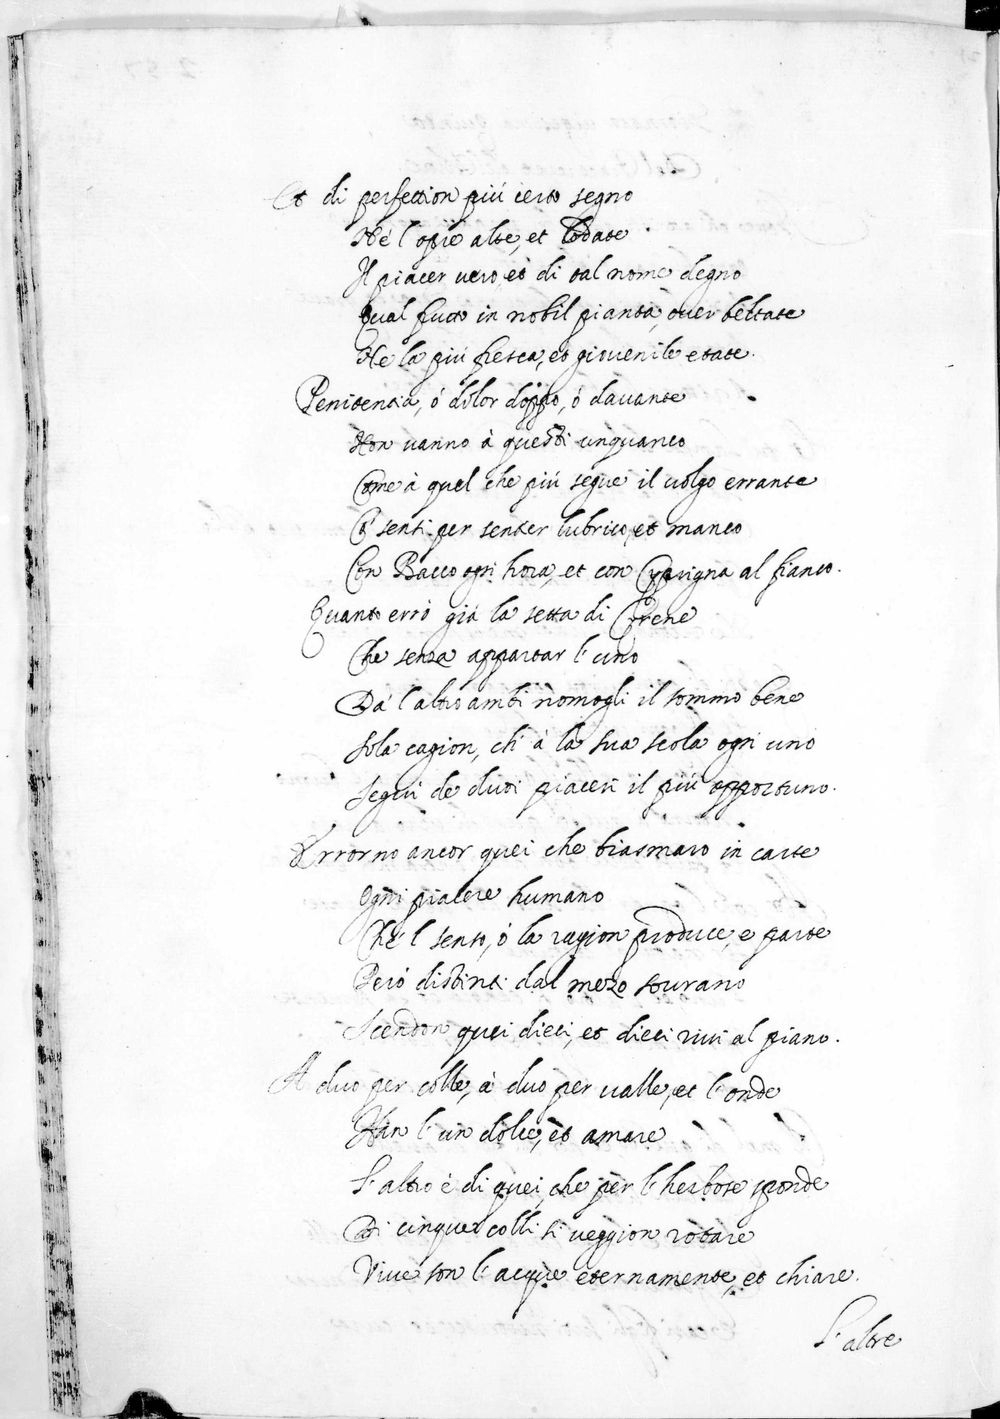 Et di perfettion più certo segno
Nè l'opre alte, et lodate
Il piacer vero, et di tal nome degno
Qual fuor in nobil pianta, over beltate
Ne la più fresca, et giovenile etate.
Penitentia, ó dolor doppo, ó davante
Non vanno à questi unquanco
Come à quel che più segue il volgo errante
Per sentier lubrico, et manco
Con Bacco ogni hora, et con Ciprigna al fianco.
Quanto errò già la setta di Cirene
Che senza appartar l'uno
Da l'altro ambi nomogli il sommo bene
Sola cagion, ch'à la sua scola ogni uno
Seguì de duoi piaceri il più opportuno.
Errorno ancor quei che biasmaro in carte
Ogni piacere humano
Che'l senso, ó la ragion produce, e parte
Però distinti dal mezo sovrano
Scendon quei dieci, et dieci rivi al piano.
A duo per colle, à duo per valle, et l'onde
Han l'un dolce, et amare
L'altro è di quei, che per l'herbose sponde
Di cinque colli si veggion rotare
Vive son l'acque eternamente, et chiare.
L'altre